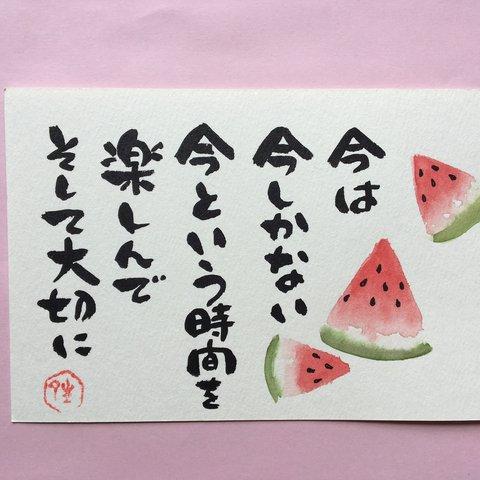 今は
今しかない
今という時間を
楽しんで
そして大切に